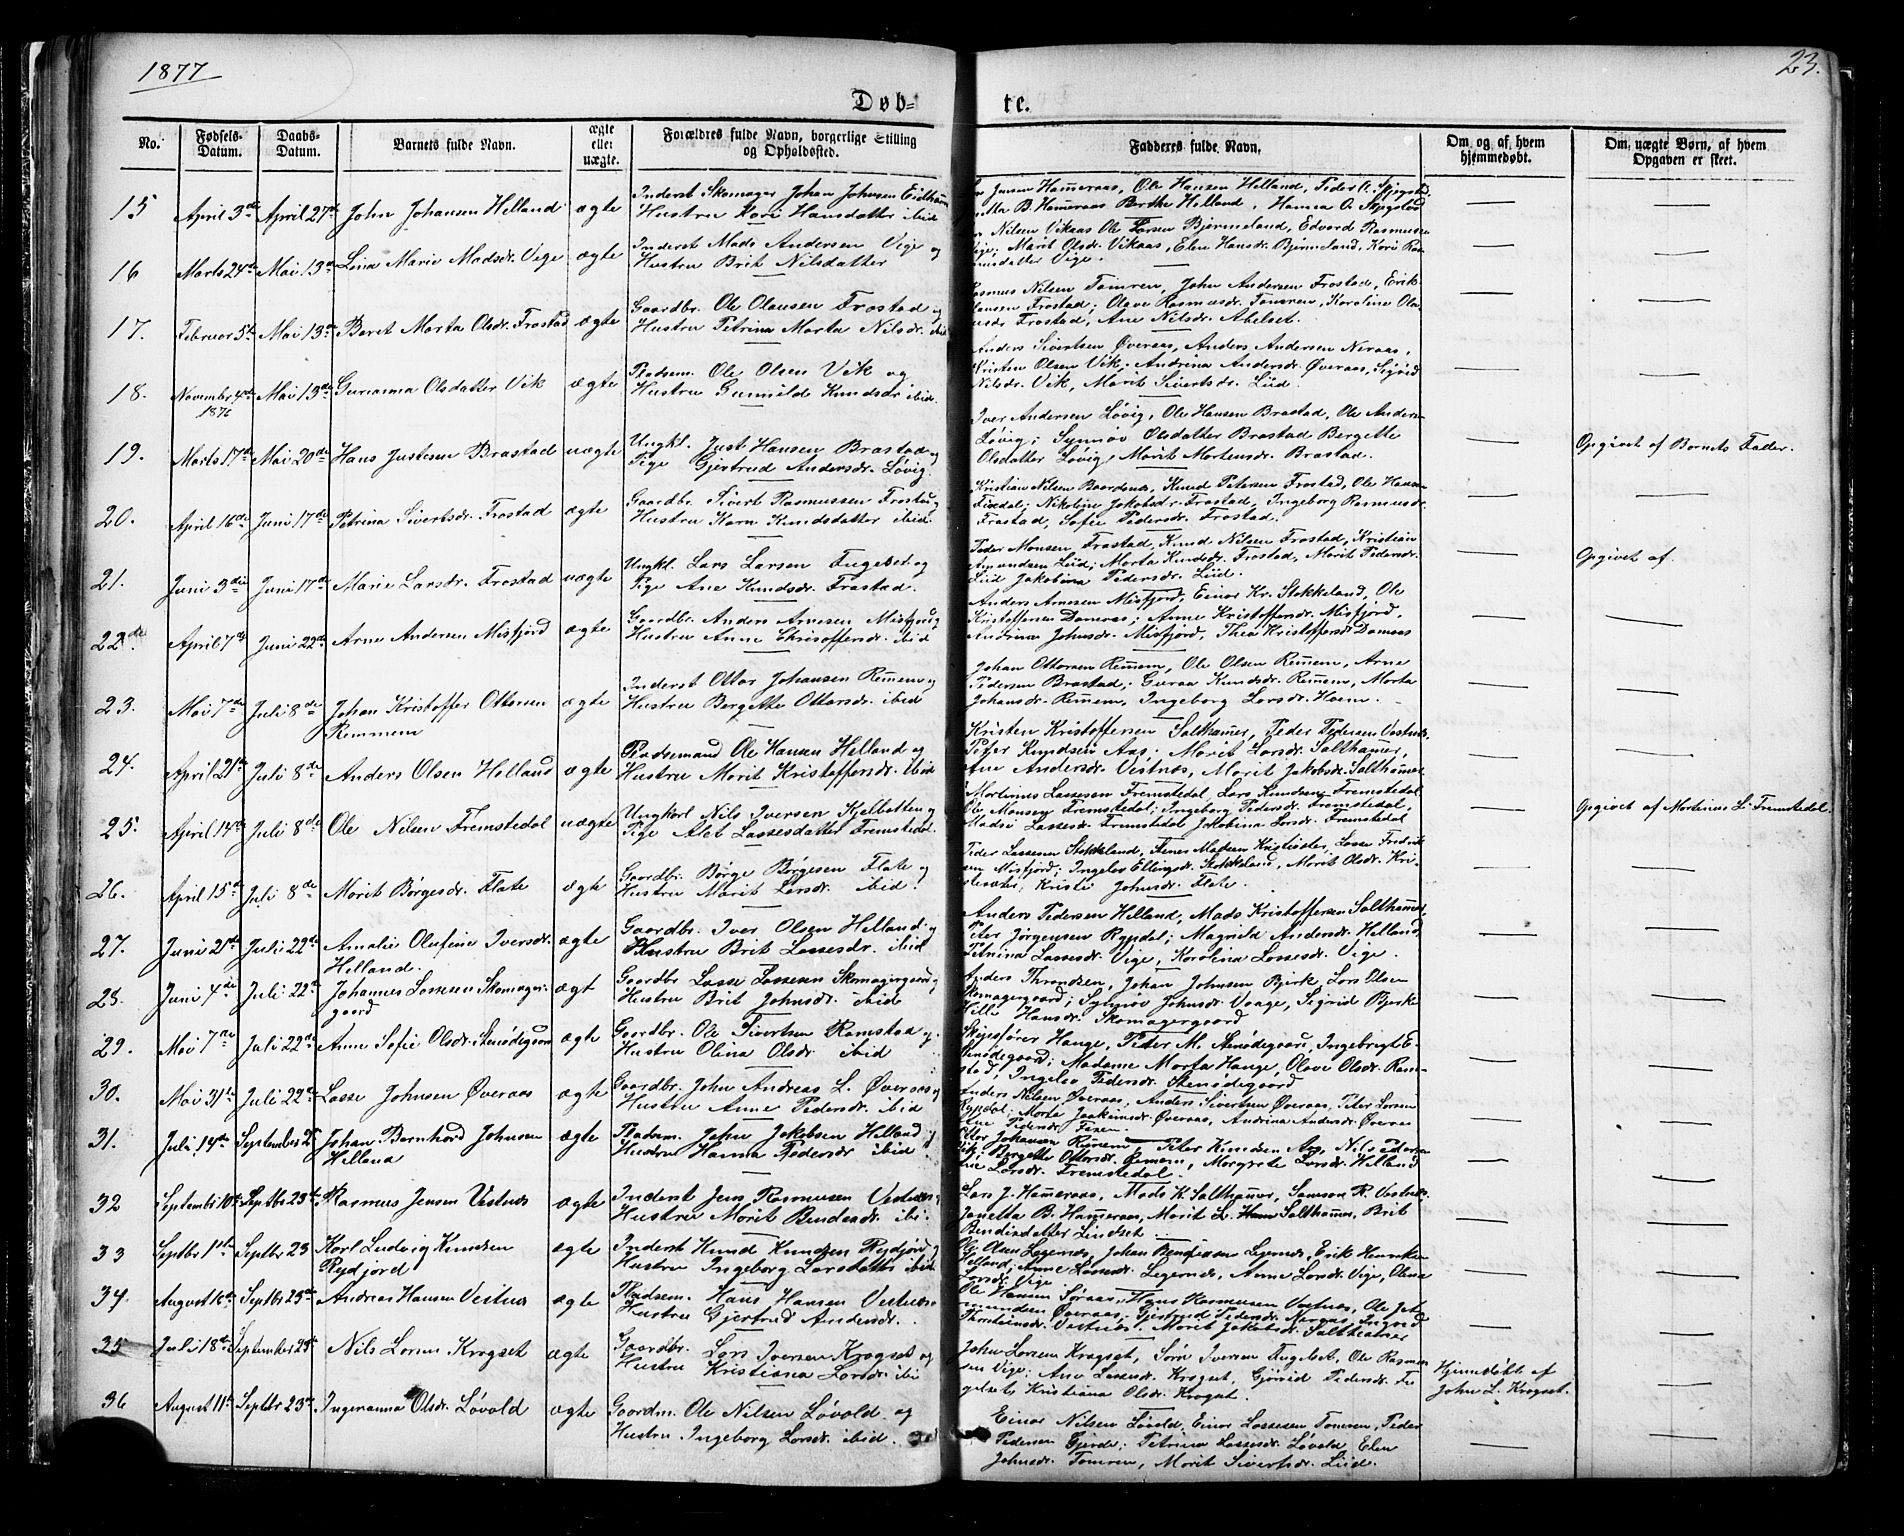 1877
23.
Døb= te.
No. Fødsels-Datum. Daabs-Datum. Barnets fulde Navn. ægte eller uægte. Forældres fulde Navn, borgerlige Stilling og Opholdssted. Fadderes fulde Navn. Om og af hvem hjemmedøbt. Om uægte Børn, af hvem Opgaven er skeet.
15 April 3de April 27de John Johansen Helland ægte Inderst Skomager Johan Johnsen Eidham
Hustru Kari Hansdatter ibid
Jensen Hammeraas, Ole Hansen Helland, Peder A.
B. Hammeraas Berthe Helland, Hanna O.
16 Marts 24de Mai 13de Lina Marie Madsdr. Vige ægte Inderst Mads Andersen Vige og
Hustru Brit Nilsdatter
Nilsen Vikaas Ole Larsen Bjermeland, Edvard Rasmussen
Vige; Marit Olsdr. Vikaas, Elen Hansdr. Bjermeland, Kari Ras-
musdatter Vige.
17. Februar 5te Mai 13de Berit Marta Olsdr. Frostad ægte Gaardbr. Ole Olausen Frostad og
Hustru Petrina Marta Nilsdr. ibid
Rasmus Nilsen Tomren, John Andersen Frostad, Erik
Hansen Frostad; Olave Rasmusdr. Tomren, Karoline Ola-
usdr. Frostad, Ane Nilsdr. Abelset.
18. Novembr. 4de 1876 Mai 13de Gurianna Olsdatter Vik ægte Pladsem. Ole Olsen Vik og
Hustru Gunnilde Knudsdr ibid.
Anders Sivertsen Øveraas, Anders Andersen Neraas,
Kristen Olsen Vik; Andrina Andersdr. Øveraas, Sigrid
Nilsdr. Vik, Marit Sivertsdr. Liid.
19. Marts 17de Mai 20de Hans Justesen Brastad uægte Ungkl. Just Hansen Brastad og
Pige Gjertrud Andersdr. Løvig.
Iver Andersen Løvig, Ole Hansen Brastad, Ole Anders.
Løvig; Synnøv Olsdatter Brastad Bergette
Olsdatter Løvig, Marit Mortensdr. Brastad.
Opgivet af Barnets Fader.
20. April 16de Juni 17de Petrina Sivertsdr. Frostad ægte Gaardbr. Sivert Rasmussen Frostad og
Hustru Karn Knudsdatter ibid
Kristian Nilsen Baardsnes, Knud Petersen Frostad, Ole Hansen
Fixdal; Nikoline Jakobsdr Frostad, Ingeborg Rasmusdr.
Frostad, Sofie Pedersdr. Frostad.
21. Juni 3die Juni 17de Marie Larsdr. Frostad uægte Ungkl. Lars Larsen Fugelset og
Pige Ane Knudsdr. Frostad.
Peder Monsen Frostad, Knud Nilsen Frostad, Kristian
Amundsen Liid; Marta Knudsdr. Frostad, Marit Pedersdr.
Liid Jakobina Pedersdr. Liid.
Opgivet af.
22de April 7de Juni 22de Arne Andersen Misfjord ægte Gaardbr. Anders Arnesen Misfjord
Hustru Anne Chrisoffersdr. ibid
Anders Arnesen Misfjord, Einar Kr. Stokkeland, Ole
Kristoffersen Dameraas; Anne Kristoffersdr. Misfjord,
Andrina Johnsdr. Misfjord, Thea Kristoffersdr Damaas
23. Mai 7de Juli 8de Johan Kristoffer Ottorsen
Remmem ægte Inderst Ottar Johansen Remem og
Hustru Bergette Ottarsdr. ibid
Johan Ottorsen Remem, Ole Olsen Remem, Arne
Pedersen Brastad; Guraa Knudsdr. Remem, Marta
Johansdr. Remem, Ingeborg Larsdr. Hoem.
24. April 21de Juli 8de Anders Olsen Helland ægte Pladsemand Ole Hansen Helland og
Hustru Marit Kristoffersdr. ibid
Kristen Kristoffersen Salthamer, Peder Pedersen Vestnes,
Peter Knudsen Aas; Marit Larsdr. Salthamer,
Ane Andersdr. Vestnes, Marit Jakobsdr. Salthamer
25. April 14de Juli 8de Ole Nilsen Fremstedal uægte Ungkarl Nils Iversen Kjelbotten og
Pige Alet Lassesdatter Fremstedal
Martinus Lassesen Fremstedal, Lars Knudsen Fremstedal
Ole Monsen Fremstedal; Ingeborg Pedersdr. Fremstedal,
Madsi Lassesdr. Fremstedal Jakobina Larsdr. Fremstedal
Opgivet af Martinus L. Fremstedal.
26. April 15de Juli 8de Marit Børgesdr. Flate ægte Gaardbr. Børge Børgesen Flate og
Hustru Marit Larsdr. ibid.
Peder Lassesen Stokkeland, Madsen Lasse Fredrik
sen Misfjord; Ingelev Ellingsdr. Stokkeland, Marit Olsdr. Kri-
Kristi Johnsdr. Flate.
27. Juni 21de Juli 22de Amalie Olufine Iversdr.
Helland. ægte Gaardbr. Iver Olsen Helland og
Hustru Brit Lassesdr. ibid
Anders Pedersen Helland, Mads Kristoffersen Salthamer,
Peter Jørgensen Rypdal; Magnild Andersdr. Helland,
Petrina Lassesdr. Vige, Karolina Lassesdr. Vige.
28. Juni 4de Juli 22de Johannes Lassesen Skomager-
gaard ægt Gaardbr. Lasse Lassesen Skomagergaard og
Hustru Brit Johnsdr. ibid
Anders Throndsen, Johan Johnsen Bjerk, Lars Olsen
Skomagergaard; Synnøv Johnsdr. Vaage, Sigrid Bjerke
Hansdr. Skomagergaard.
29. Mai 7de Juli 22de Anne Sofie Olsdr. Stenødegaard ægte Gaardbr. Ole Sivertsen Ramstad og
Hustru Olina Olsdr. ibid
Skipsfører Hauge, Peder M. Stenødegaard, Ingebrigt E.
Stenødegaard; Madame Marta Hauge, Olave Olsdr. Ram-
stad, Ingelev Pedersdr. Stenødegaard
30. Mai 31te Juli 22de Lasse Johnsen Øveraas ægte Gaardbr. John Andreas L. Øveraas og
Hustru Anne Pedersdr. ibid
Anders Nilsen Øveraas, Anders Sivertsen Øveraas, Peter Larsen
Rypdal; Marta Joakimsdr. Øveraas, Andrina Andersdr. Øveraas
Pedersdr.
31. Juli 14de September 2 Johan Bernhard Johnsen
Helland ægte Pladsm. John Jakobsen Helland og
Hustru Hanna Pedersdr ibid.
Ottar Johansen Remem Peter Knudsen Aas, Nils Pedersen
Vik; Bergette Ottarsdr. Remem, Margrete Larsdr. Helland
Larsdr. Fremstedal.
32 Septembr 10de Septbr 23de Rasmus Jensen Vestnes ægte Inderst Jens Rasmusen Vestnes
Hustru Marit Bendixdr. ibi.
Lars J. Hameraas, Mads K. Salthamer, Samson R. Vestnes.
Janetta B. Hameraas, Marit L. Salthamer, Brit
Bendixdatter Lindset.
33 Septbr 1ste Septbr 23 Karl Ludvig Knudsen
Rydjord ægte Inderst Knud Knudsen Rydjord og
Hustru Ingeborg Larsdatter ibid
Ole Olsen Legernes, Johan Bendixsen Legernes, Erik Henriksen
Helland; Anne Lassesdr. Legernes, Anne Larsdr. Vige, Olina
Larsdr. Vige
34. August 16de Septbr 23de Andreas Hansen Vestnes ægte Pladsem. Hans Hansen Vestnes
Hustru Gjertrud Andersdr.
Ole Hansen Søraas, Hans Rasmusen Vestnes, Ole
Øveraas; Gjertrud Pedersdr. Neraas, Ingrid
Thorsteinsdr. Vestnes. Marit Jakobsdr. Salthamer
35 Juli 18de September 23de Nils Larsen Krogset ægte Gaardbr. Lars Iversen Krogset og
Hustru Kristiana Larsdr. ibi
John Larsen Krogset, Søren Iversen Fugelset, Ole Rasmus
sen Vige; Ane Lassesdr. Krogset, Gjørid Pedersdr. Fu
gelset, Kristiana Olsdr. Krogset.
Hjemdøbt af
John L. Krogset.
36 August 11te Septbr 23de Ingerianna Olsdr. Løvold ægte Gaardm. Ole Nilsen Løvold og
Hustru Ingeborg Larsdr. ibid.
Einar Nilsen Løvold, Einar Lassesen Tomren, Peder
Pedersen Gjerde; Petrina Lassesdr. Løvold, Elen
Johnsdr. Tomren, Marit Sivertsdr. Liid.